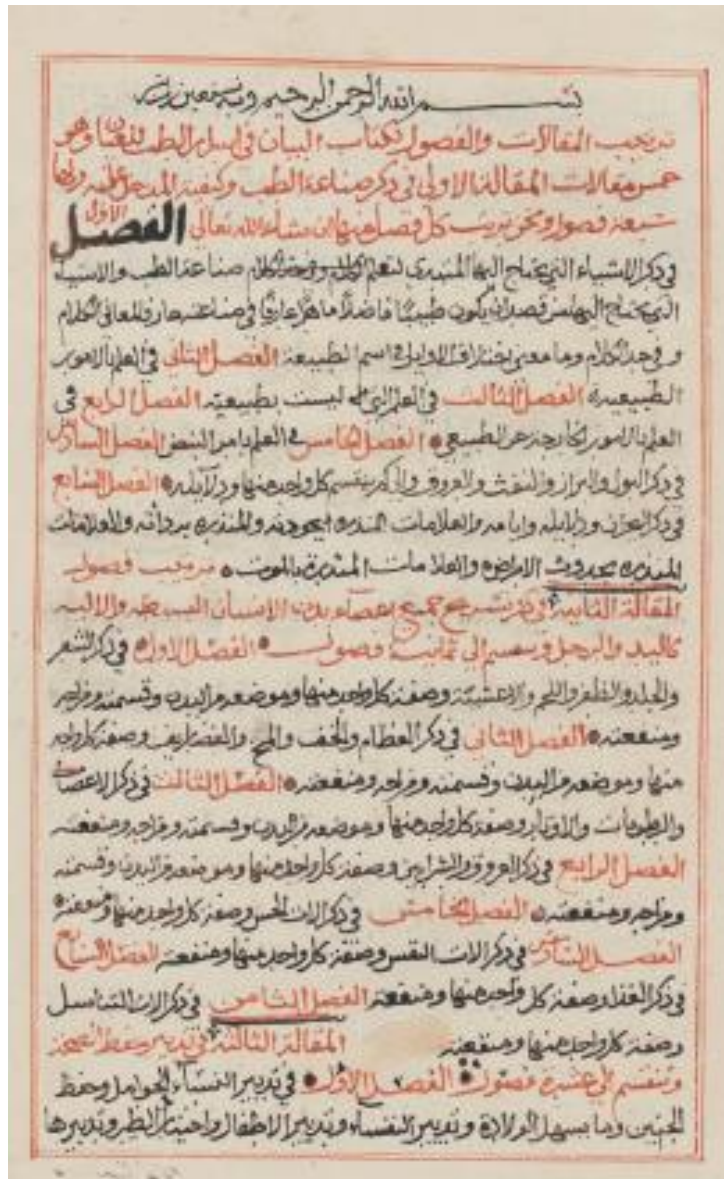 بسم الله الرحمن الرحيم وبه نستعين
المقالات والفصول لكتاب البيان في اسرار الطب وهو
خمس مقالات المقالة الاولى في ذكر صناعة الطب وكيفية المدخل
سبعة فصول ونحن كل فصل منها ان شاء الله تعالى الفصل الاول
في ذكر الاشياء التي يحتاج اليها المبتدى صناعة الطب والاشياء
التي يحتاج اليها من قصد ان يكون طبيبا فاضلا ماهرا عارفا في صناعته عارفا لمعاني الكلام
وفي حد الكلام وما معنى اختلاف الاوايل في اسم الطبيعة الفصل الثاني في العلم بالامور
الطبيعية الفصل الثالث في العلم التي ليست بطبيعية الفصل الرابع في
العلم بالامور الخارجة عن الطبيعي الفصل الخامس في العلم بامر النبض الفصل السادس
في ذكر البول والبراز والنفث والعروق كل واحد منها ودلايله الفصل السابع
في ذكر البحران ودلايله وايامه والعلامات المنذرة بجودته والمنذرة برداته والعلامات
المنذرة بحدوث الامراض والعلامات المنذرة بالموت ترتيب فصول
المقالة الثانية في ذكر تشريح جميع اعضاء بدن الانسان البسيطة والالية
كاليد والرجل وينقسم الى ثمانية فصول الفصل الاول في ذكر الشعر
والجلد والظفر واللحم والاغشية وصفة كل واحد منها وموضعه من البدن وقسمته ومزاجه
ومنفعته الفصل الثاني في ذكر العظام والمخ والغضاريف وصفة كل واحد
منها وموضعه من البدن وقسمته ومزاجه ومنفعته الفصل الثالث في ذكر الاعصاب
والرباطات والاوتار وصفة كل واحد منها وموضعه من البدن وقسمته ومزاجه ومنفعته
الفصل الرابع في ذكر العروق والشرايين وصفة كل واحد منها وموضعه من البدن وقسمته
ومزاجه ومنفعته الفصل الخامس في ذكر الات الحس وصفة كل واحد منها ومنفعته
الفصل السادس في ذكر الات النفس وصفة كل واحد منها ومنفعته الفصل السابع
في ذكر الغذا وصفة كل واحد منها ومنفعته الفصل الثامن في ذكر الات التناسل
وصفة كل واحد منها ومنفعته المقالة الثالثة في تدبير حفظ الصحة
وتنقسم الى عشرة فصول الفصل الاول في تدبير النساء الحوامل وحفظ
الجنين وما يسهل الولادة وتدبير النفساء وتدبير الاطفال واختيار الظئر وتدبيرها